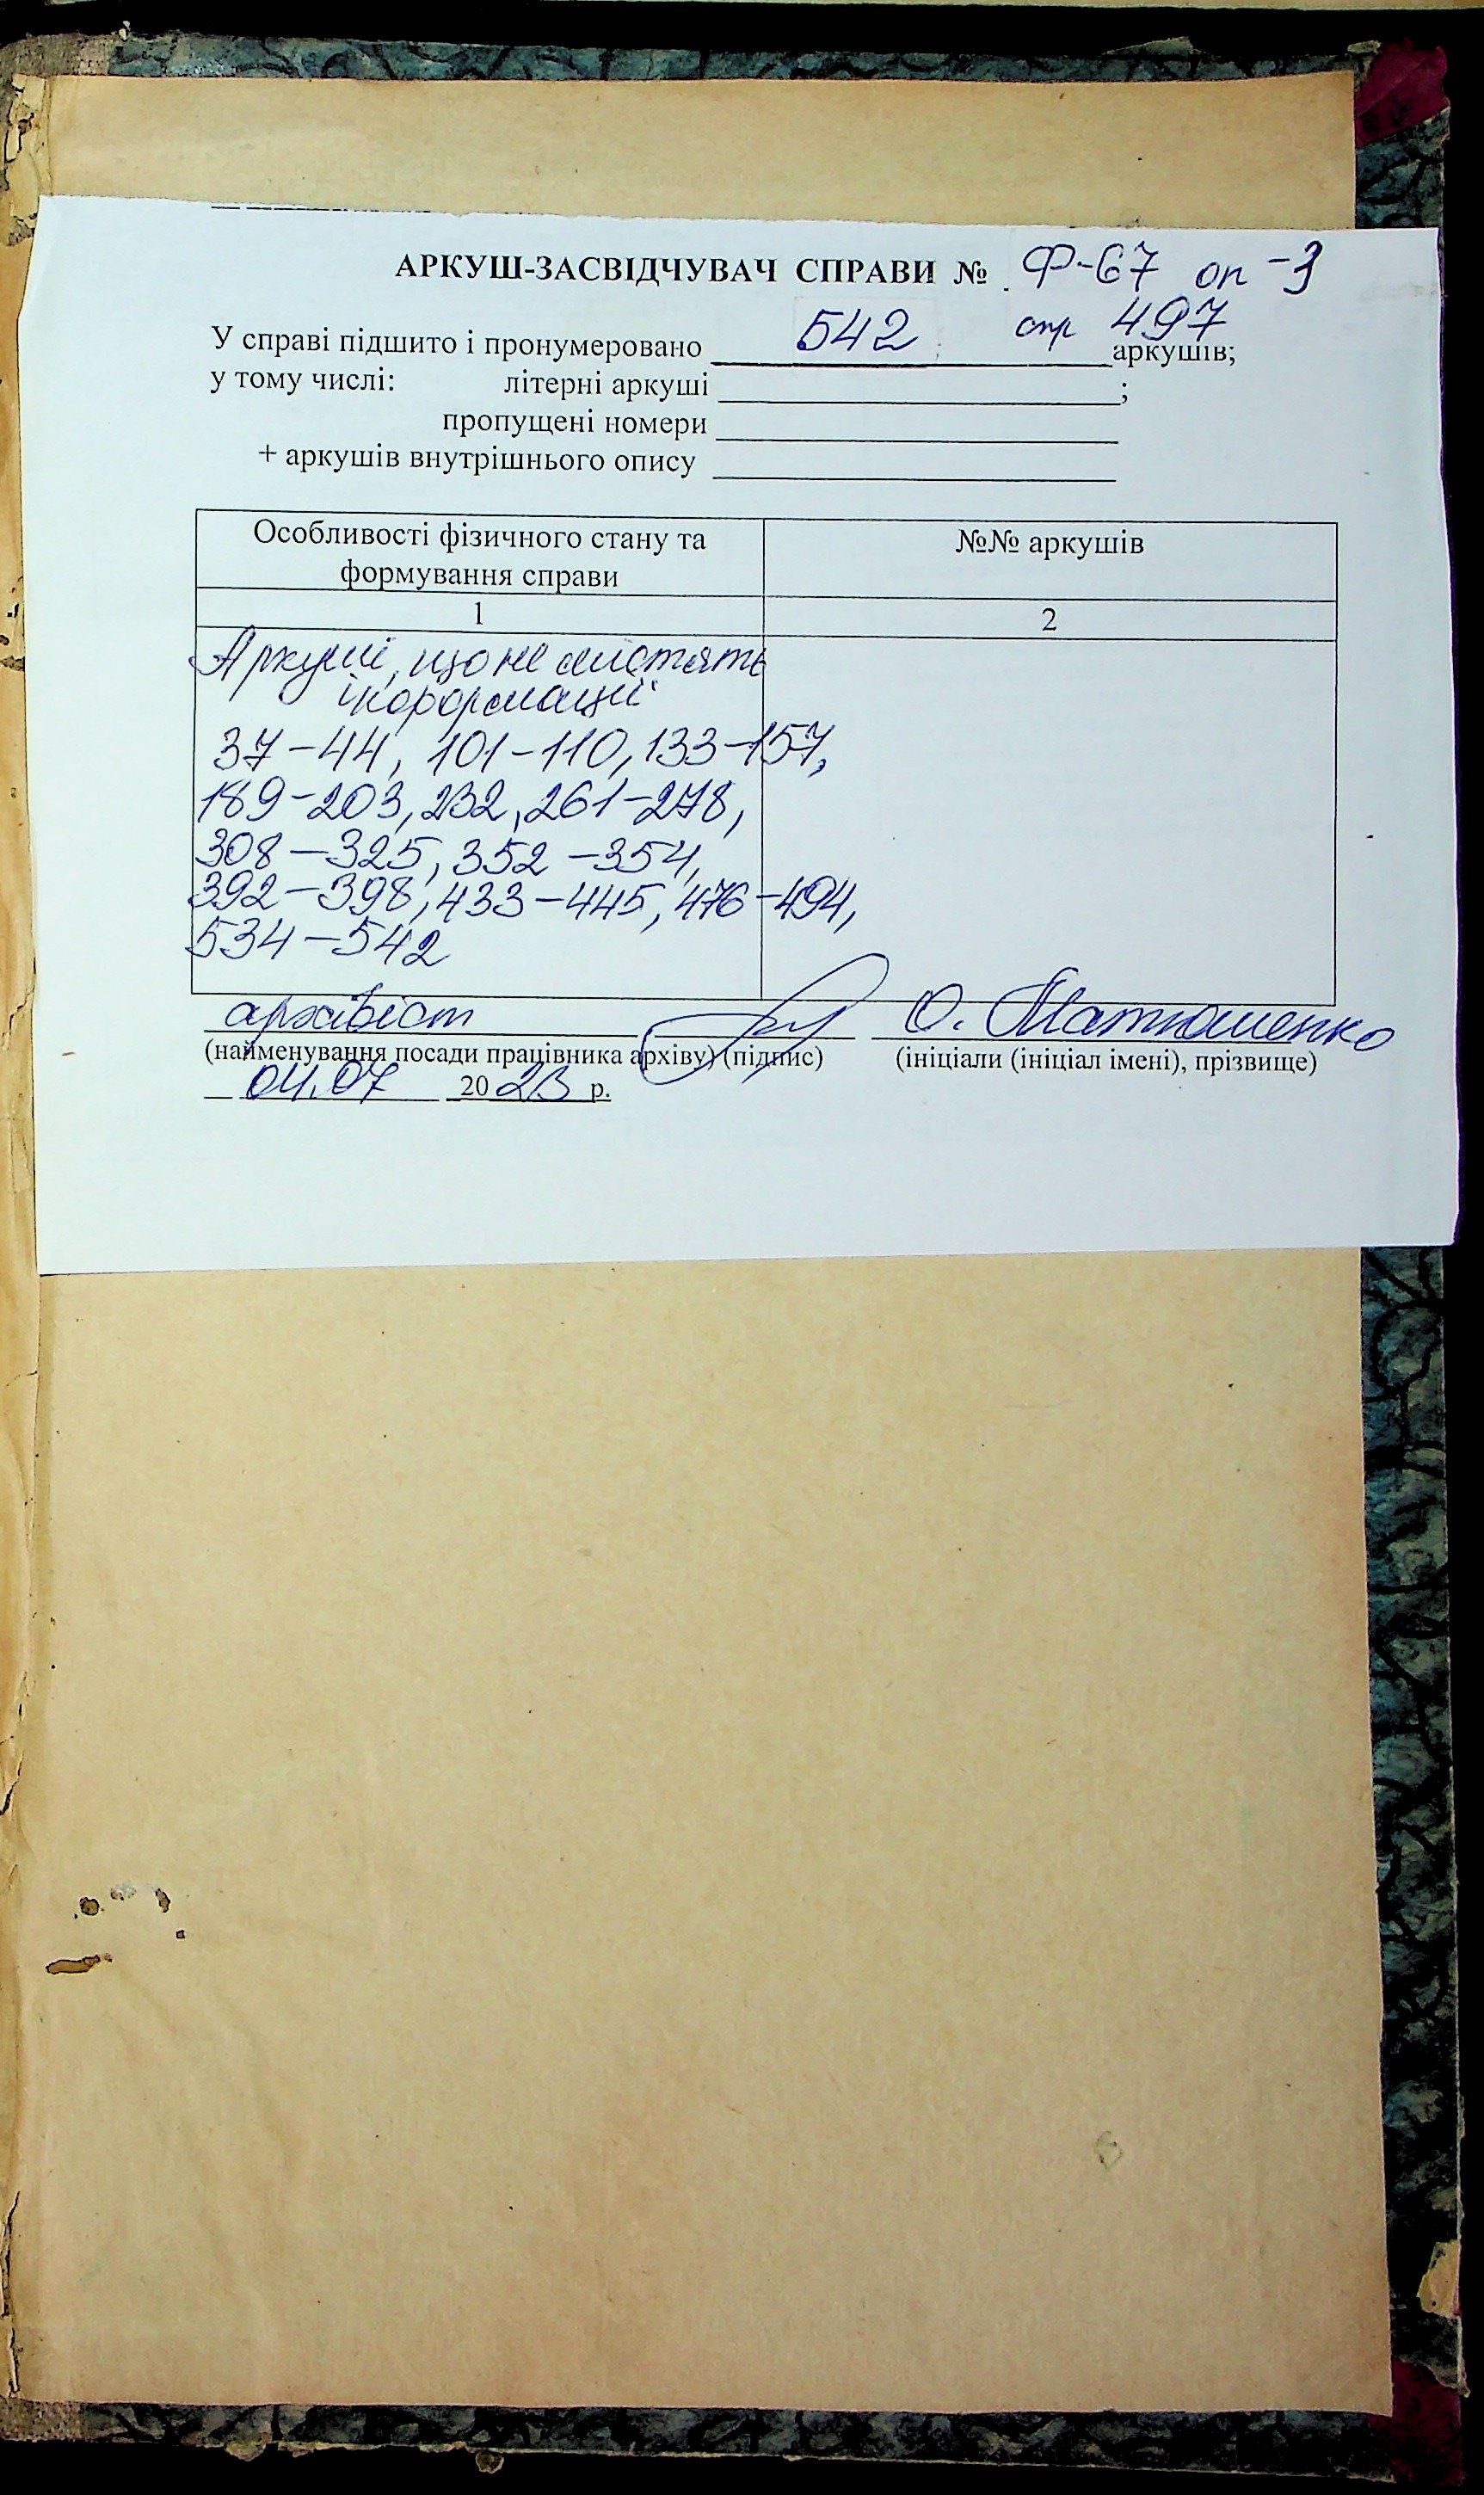 АРКУШ-ЗАСВІДЧУВАЧ СПРАВИ № Ф-67 оп-3
У справі підшито і пронумеровано 542 спр 497 аркушів;
у тому числі: літерні аркуші ;
пропущені номери
+ аркушів внутрішнього опису
Особливості фізичного стану та
формування справи
№№ аркушів
1
2
Аркуші, що не містять
інформації
37-44, 101-110, 133-157,
189-203, 232, 261-278,
308-325, 352-354,
392-398, 433-445, 476-494,
534-542
архівіст О. Матюшенко
(найменування посади працівника архіву) (підпис) (ініціали (ініціал імені), прізвище)
04.07 2023 р.